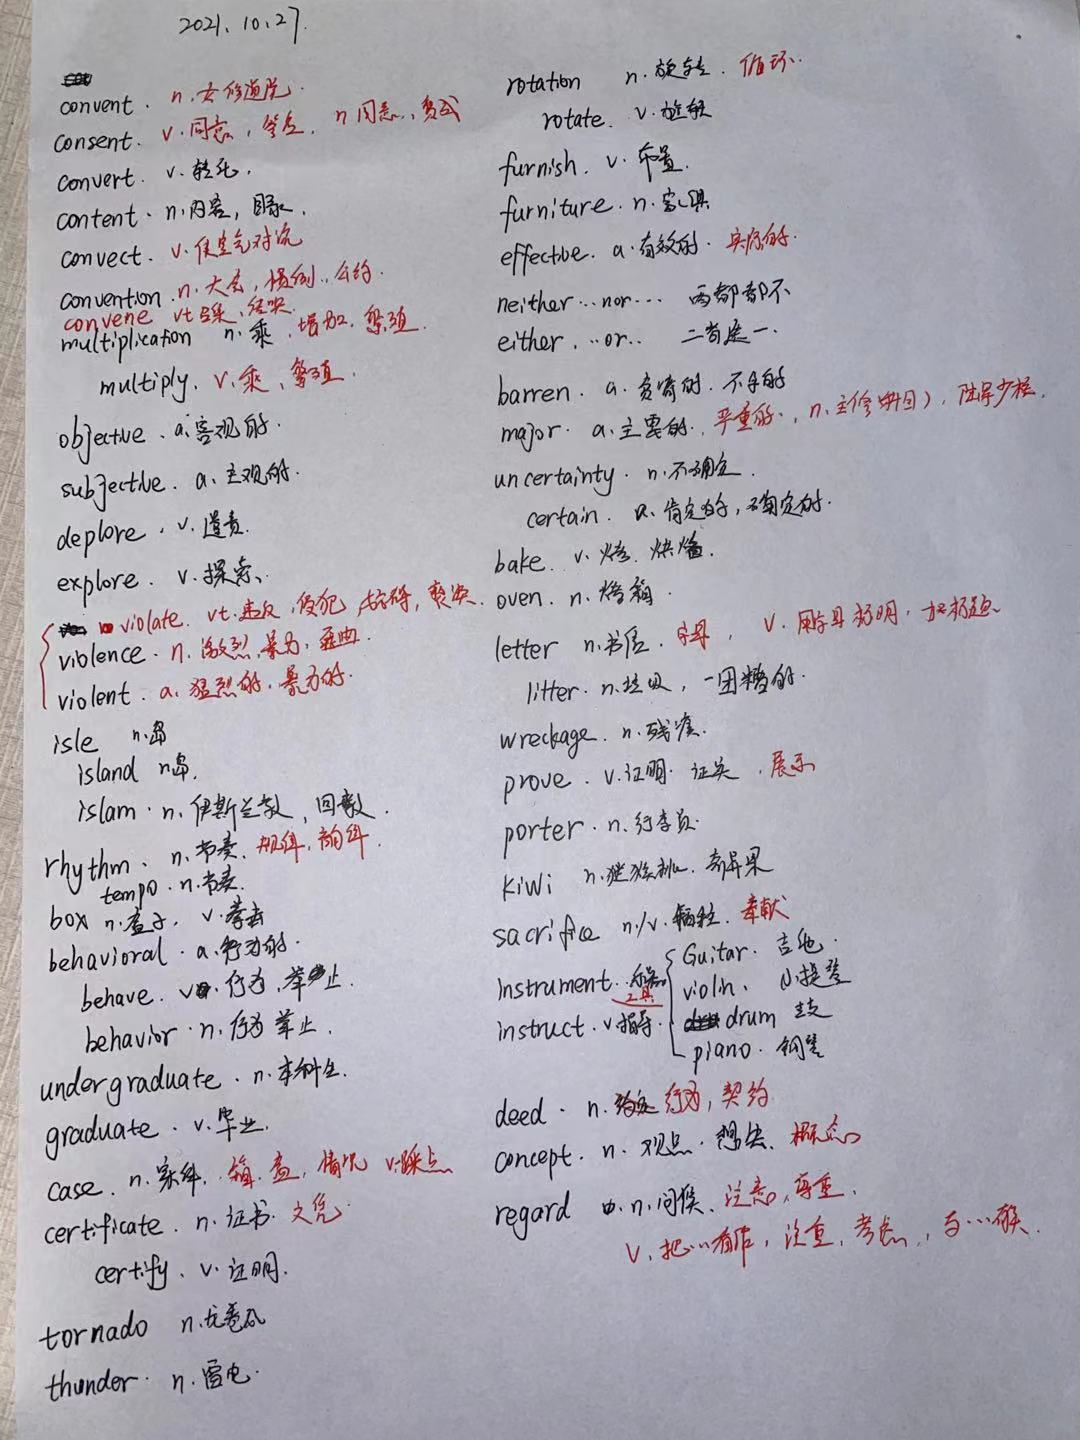 2021.10.27.
convent. n.女修道院.
consent. v.同意, 答应, n同意,赞成
convert. v.转化.
content. n.内容, 目录.
convect. v.使空气对流
convention. n.大会, 惯例, 公约.
convene vt召集,
multiplication n.乘, 增加, 繁殖.
multiply. v.乘, 繁殖.
objective. a.客观的.
subjective. a.主观的.
deplore. v.谴责.
explore. v.探索.
violate. vt.违反, 侵犯,
violence. n.激烈, 暴力, 歪曲.
violent. a.猛烈的, 暴力的.
isle n.岛
island n岛.
islam. n.伊斯兰教, 回教.
rhythm. n.节奏, 规律, 韵律.
tempo. n.节奏.
box n.盒子, v.拳击
behavioral. a.行为的.
behave. v.行为, 举止.
behavior. n.行为 举止.
undergraduate. n.本科生.
graduate. v.毕业.
case. n.案件. 箱, 盒, 情况 v.踩点
certificate. n.证书. 文凭.
certify. v.证明.
tornado n.龙卷风
thunder. n.雷电.
rotation n.旋转. 循环.
rotate. v.旋转
furnish. v.布置.
furniture. n.家具
effective. a.有效的. 实际的.
neither...nor... 两者都不
either...or.. 二者选一.
barren. a.贫瘠的. 不孕的
major. a.主要的, 严重的, n.主修(科目),
uncertainty. n.不确定.
certain. a.肯定的, 确定的.
bake. v.烤, 烘焙.
oven. n.烤箱.
letter n.书信, 字母, v.用字母标明, 加标题
litter. n.垃圾, 一团糟的.
wreckage. n.残渣.
prove. v.证明. 证实, 展示
porter. n.行李员.
kiwi n.猕猴桃. 奇异果
sacrifice n/v.牺牲, 奉献
instrument. 乐器 工具
Guitar. 吉他.
violin. 小提琴
instruct. v.指导.
drum 鼓
piano. 钢琴
deed. n. 行为, 契约.
concept. n.观点. 想法. 概念
regard n.问候, 注意, 尊重.
v.把...看作, 注重, 考虑, 与...有关.